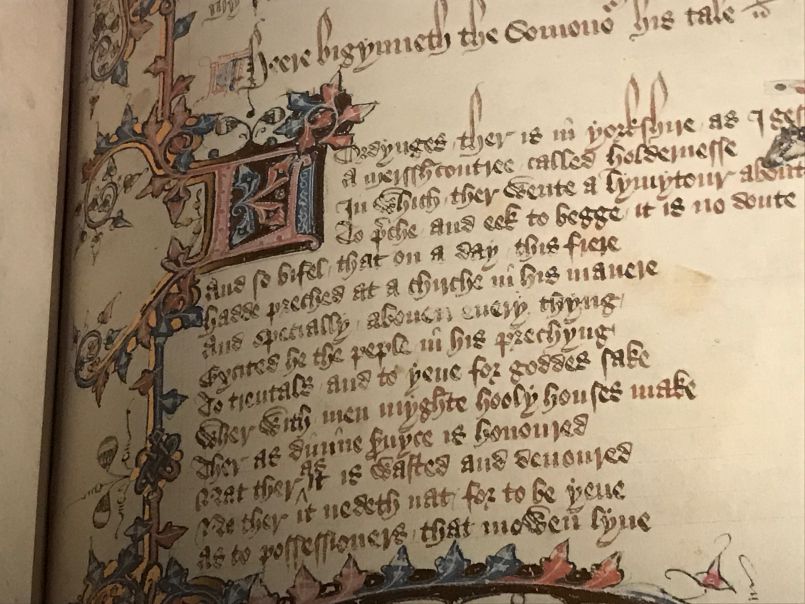 Heere bigynneth the Somonoᵘ his tale
Lordynges ther is in yorkshire as I gesse
A merssh contree called Holdernesse
In which ther wente a lymytour aboute
To p̄che and eek to begge it is no doute
And so bifel that on a day this frere
Hadde preched at a chirche in his manere
And specially abouen euery thyng
Excited he the peple in his prechyng
To trentals and to yeue for goddes sake
Wher with men myghte hooly houses make
Ther as diuine seruyce is honoured
Nat ther as it is wasted and deuoured
Ne ther it nedeth nat for to be yeue
As to possessioners that mowen lyue